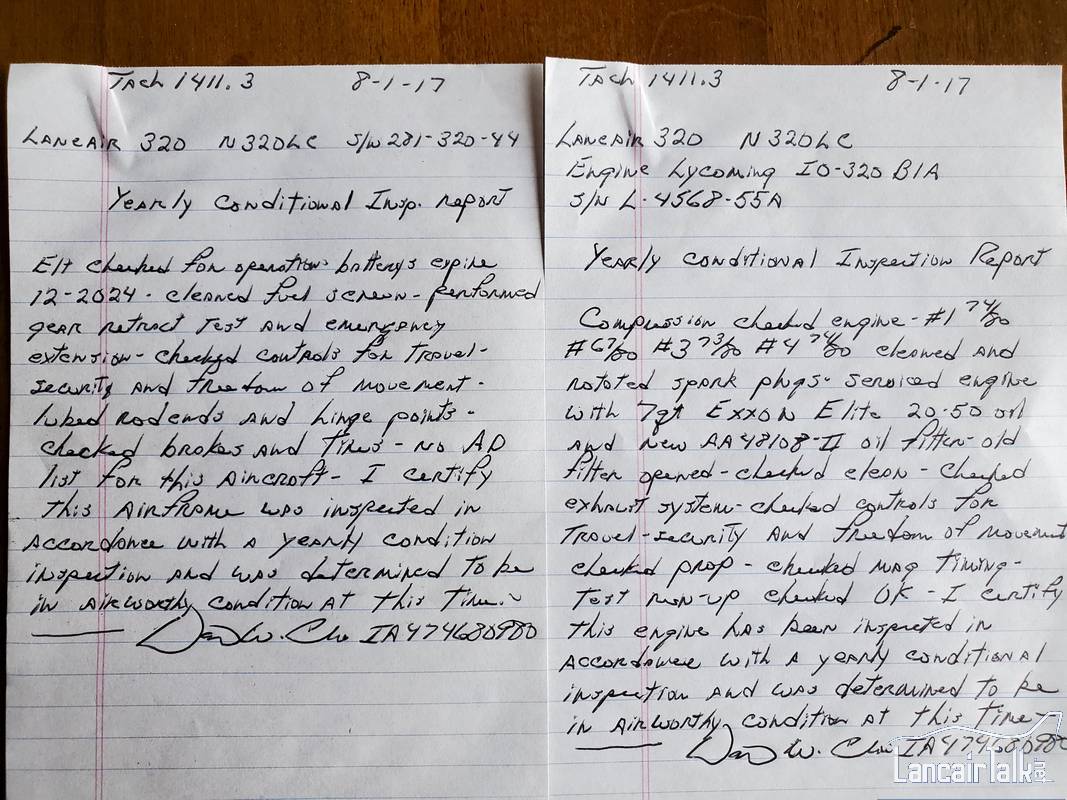 Tach 1411.3 8-1-17
Lancair 320 N320LC S/N 281-320-44
Yearly Conditional Insp. report
Elt checked for operation batterys expire
12-2024 - cleaned fuel screen - performed
gear retract test and emergency
extension - checked controls for travel -
security and freedom of movement -
lubed rodends and hinge points -
checked brakes and tires - no AD
list for this aircraft - I certify
this airframe was inspected in
accordance with a yearly condition
inspection and was determined to be
in airworthy condition at this time.
IA474680980
Tach 1411.3 8-1-17
Lancair 320 N320LC
Engine Lycoming IO-320 B1A
S/N L-4568-55A
Yearly conditional Inspection Report
Compression checked engine - #1 74/80
#3 73/80 #4 74/80 cleaned and
rotated spark plugs - serviced engine
with 7qt Exxon Elite 20-50 oil
and new AA48108-II oil filter - old
filter opened - checked clean - checked
exhaust system - checked controls for
travel - security and freedom of movement
checked prop - checked mag timing -
test run-up checked OK - I certify
this engine has been inspected in
accordance with a yearly conditional
inspection and was determined to be
in airworthy condition at this time -
IA474680980
LancairTalk.net